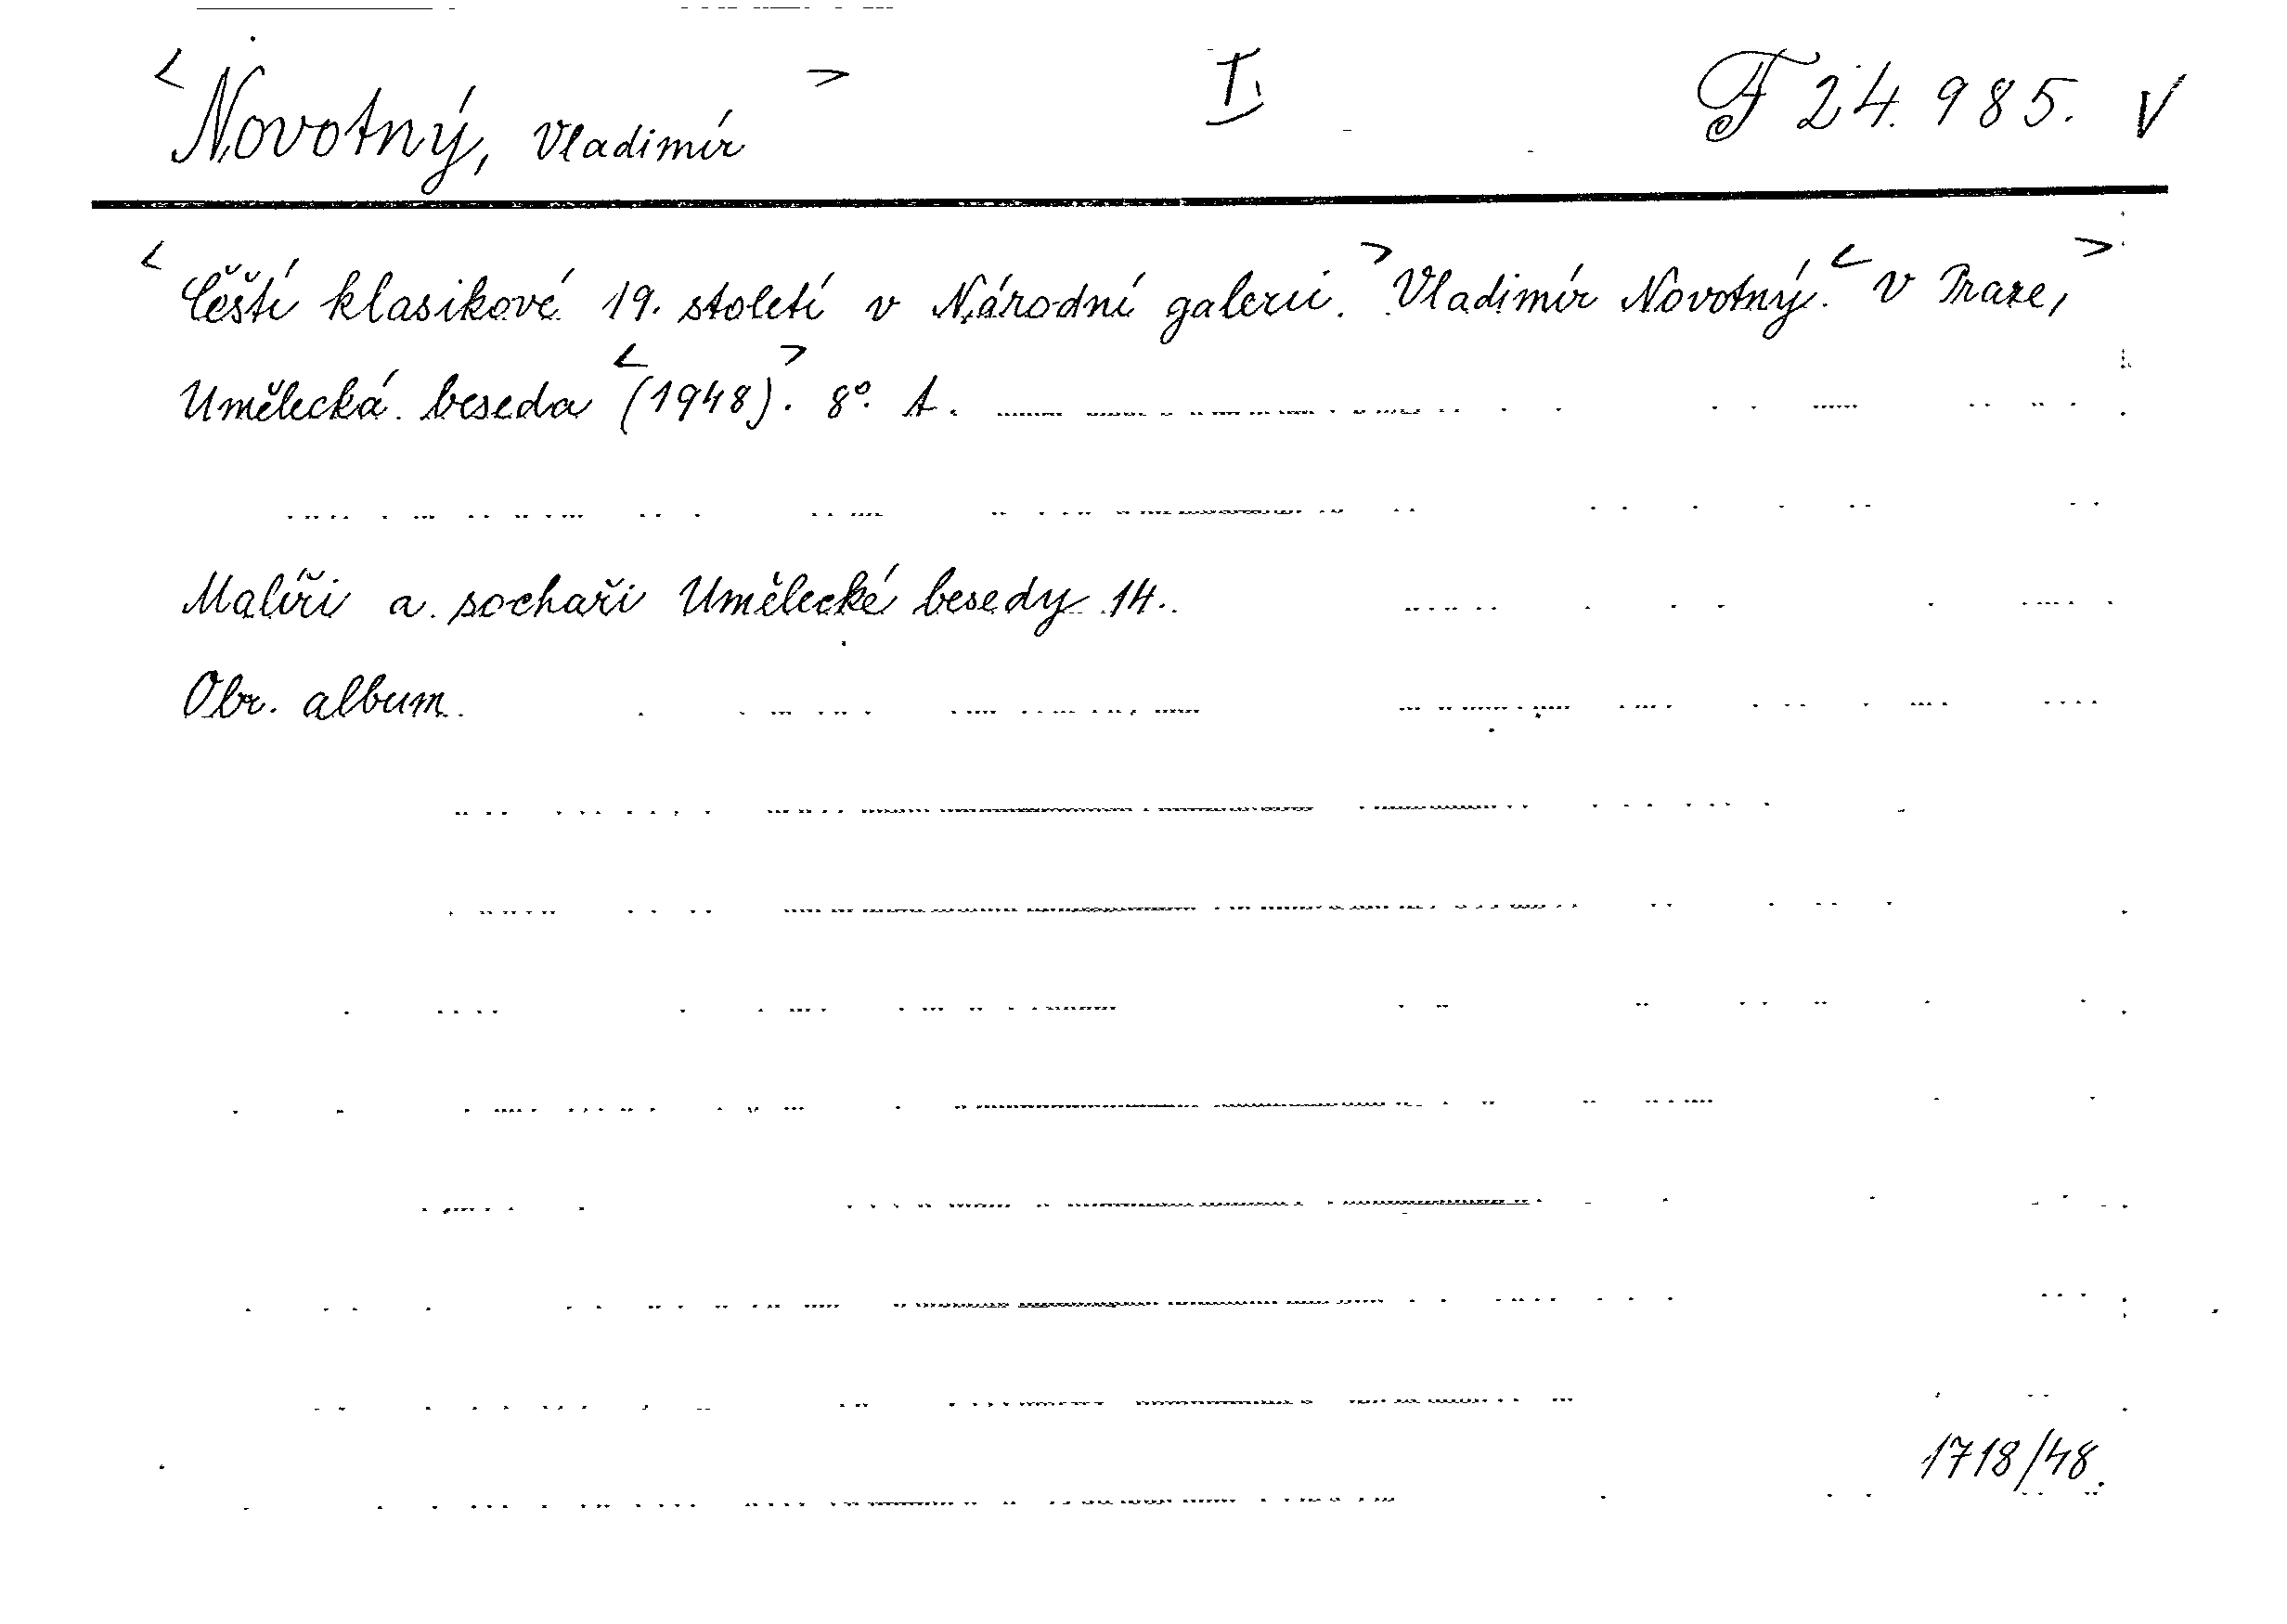 <Novotný, Vladimír> I. F 24.985. V
<Čeští klasikové 19. století v Národní galerii.> Vladimír Novotný. <V Praze,>
Umělecká beseda <(1948)>. 8°. A.
Malíři a sochaři Umělecké besedy 14.
Obr. album.
1718/48.